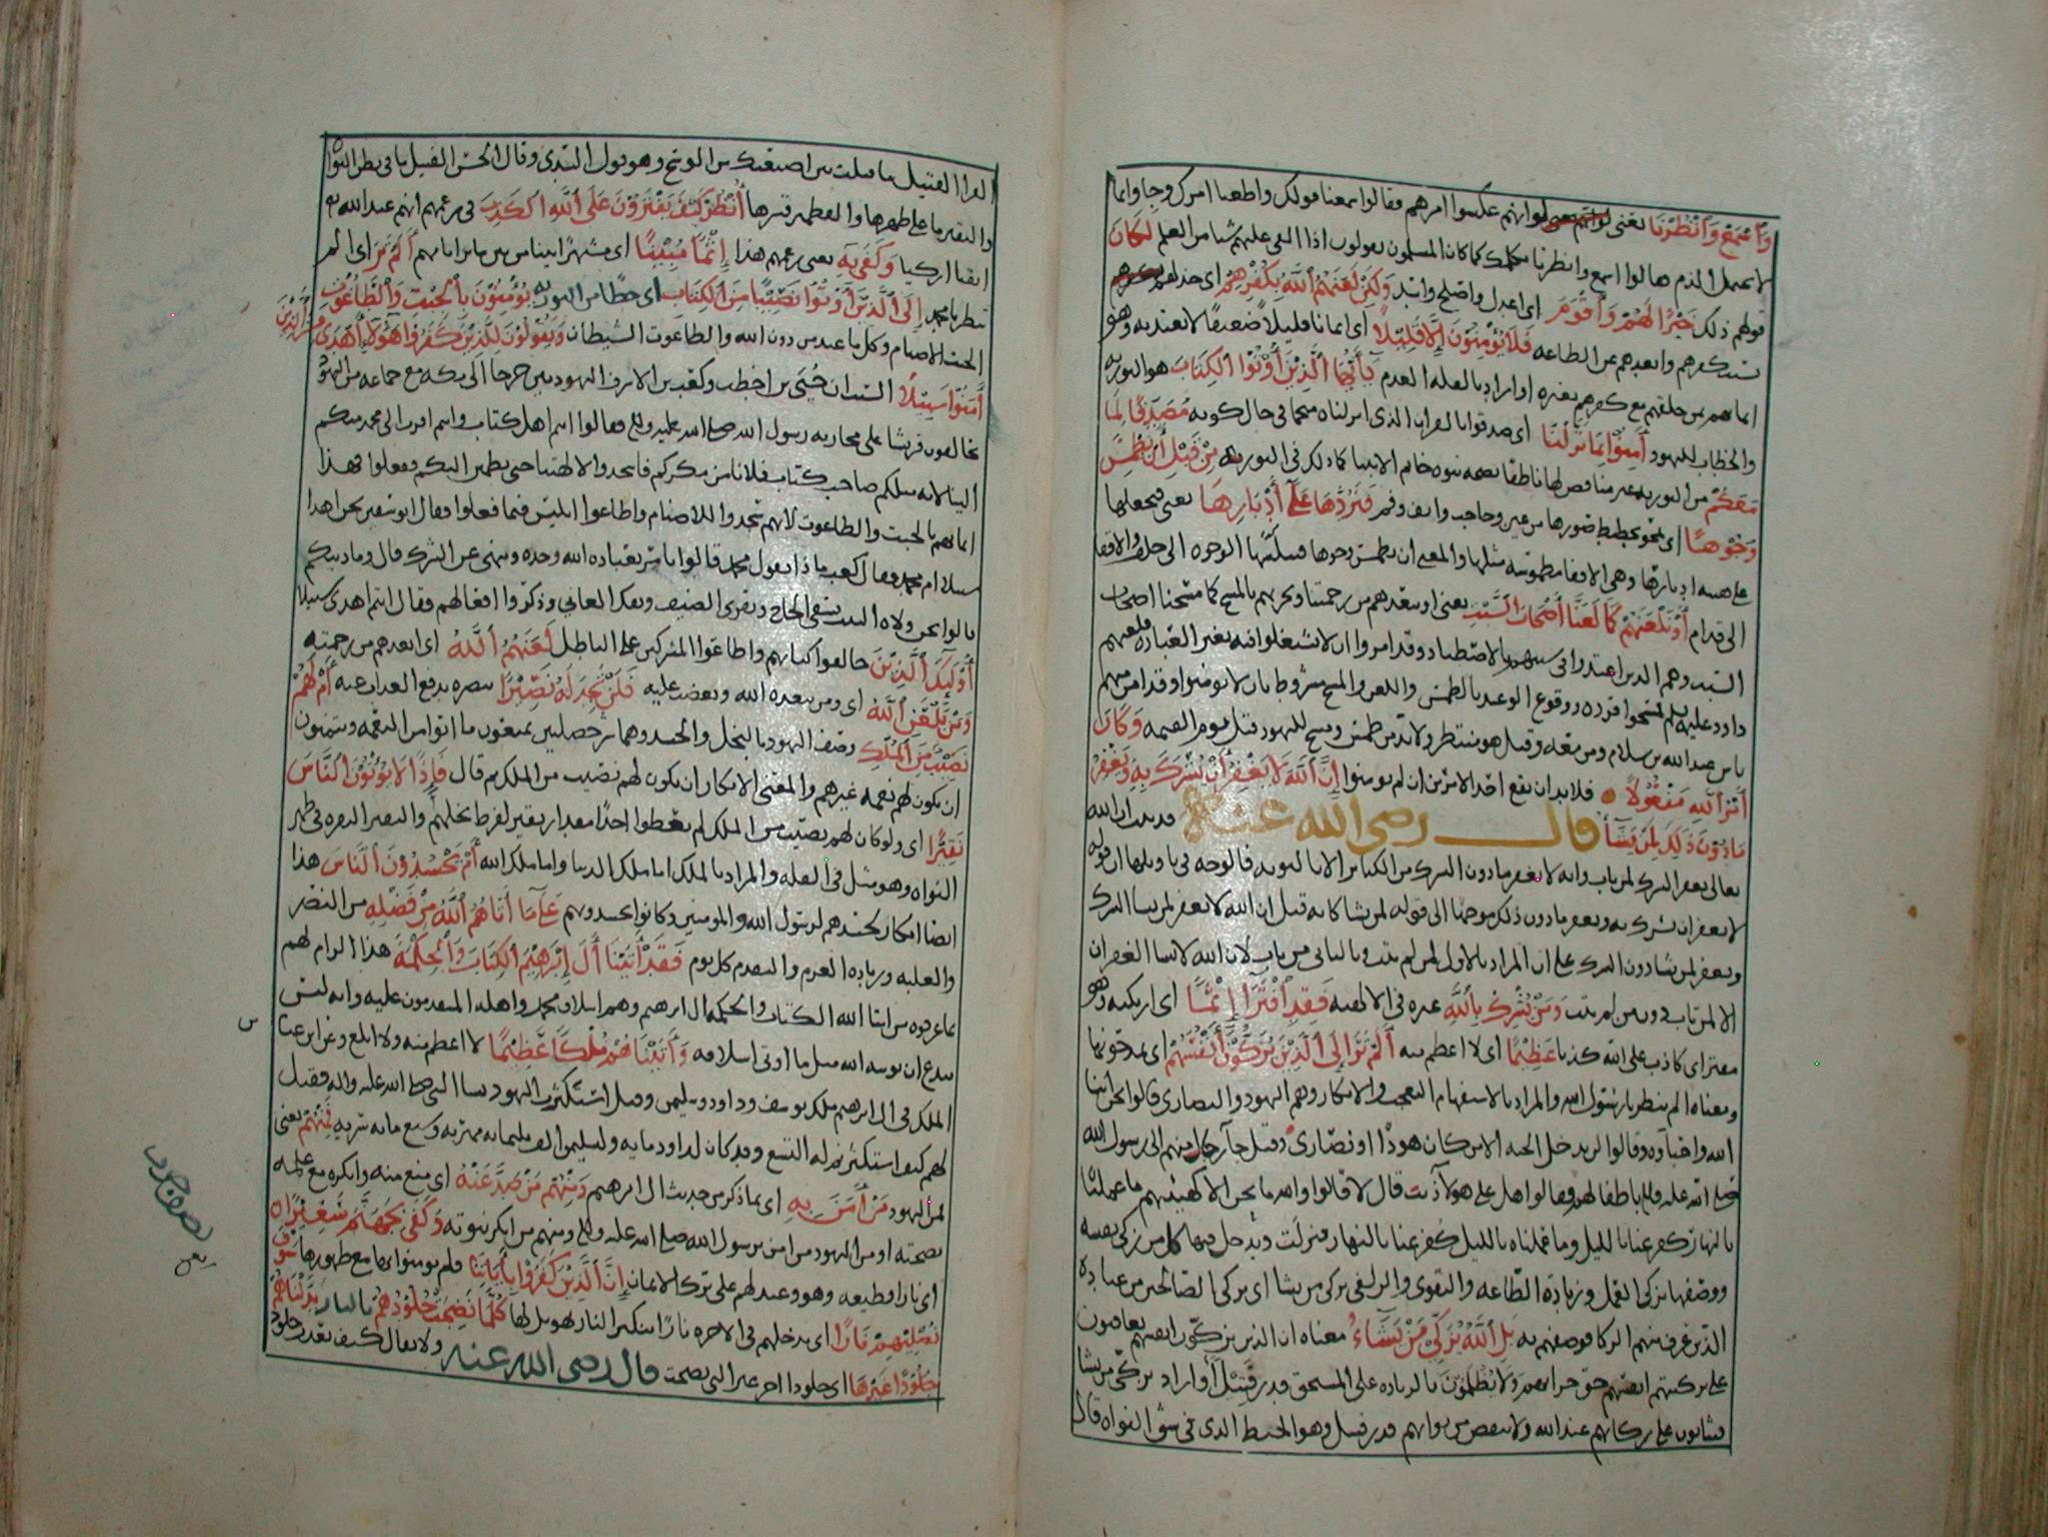 وَاسْمَعْ وَانْظُرْنَا يعني لو انهم عكسوا امرهم فقالوا سمعنا قولك واطعنا امرك وجاوا بما
لا يحتمل الذم قالوا اسمع وانظرنا كما كان المسلمون يقولون اذا القى عليهم شيا من العلم لَكَانَ
قولهم ذلك خَيْرًا لَهُمْ وَأَقْوَمَ اى اعدل واصلح واسد وَلَكِنْ لَعَنَهُمُ اللَّهُ بِكُفْرِهِمْ اى خذلهم
كفرهم وابعدهم عن الطاعه فَلَا يُؤْمِنُونَ إِلَّا قَلِيلًا اى ايمانا قليلا ضعيفا لا يعتد به وهو
ايمانهم بمن خلقهم مع كفرهم بغيره او اراد بالقله العدم يَا أَيُّهَا الَّذِينَ أُوتُوا الْكِتَابَ هو التوريه
والخطاب لليهود آمِنُوا بِمَا نَزَّلْنَا اى صدقوا بالقران الذى انزلناه منجما فى حال كونه مُصَدِّقًا لِمَا
مَعَكُمْ من التوريه خاتم الانبيا كما ذلك فى التوريه مِنْ قَبْلِ أَنْ نَطْمِسَ
وُجُوهًا اى نمحو تخطيط صورها من عين وحاجب وانف وفم فَنَرُدَّهَا عَلَى أَدْبَارِهَا يعنى فنجعلها
على هيئه ادبارها وهى الاقفا مطموسه مثلها والمعنى ان نطمس وجوها فننكسها الوجوه الى خلف والاقفا
الى قدام أَوْ نَلْعَنَهُمْ كَمَا لَعَنَّا أَصْحَابَ السَّبْتِ يعنى او نبعدهم من رحمتنا ونخزيهم بالمسخ كما مسخنا اصحاب
السبت وهم الذين اعتدوا فى سبتهم بالاصطياد وقد امروا ان لا يشتغلوا فيه بغير العباده فلعنهم
داود عليه وقوع الوعيد بالطمس واللعن والمسخ مشروط بان لا يومنوا وقد امن منهم
ناس عبد الله بن سلام ومن معه وقيل هو منتظر ولا بد من طمس ومسخ لليهود قبل يوم القيمه وَكَانَ
أَمْرُ اللَّهِ مَفْعُولًا فلا بد ان يقع احد الامرين ان لم يومنوا إِنَّ اللَّهَ لَا يَغْفِرُ أَنْ يُشْرَكَ بِهِ وَيَغْفِرُ
مَا دُونَ ذَلِكَ لِمَنْ يَشَاءُ قال رضى الله عنه قد ثبت ان الله
تعالى يغفر الشرك لمن تاب وانه لا يغفر ما دون الشرك من الكبائر الا بالتوبه فما الوجه فى تاويلها ان قوله
لا يغفر ان يشرك به ويغفر ما دون ذلك موجها الى قوله لمن يشا كانه قيل ان الله لا يغفر لمن يشا الشرك
ويغفر لمن يشا دون الشرك على ان المراد بالاول لمن لم يتب وبالثانى من تاب لان الله لا يشا الغفران
الا لمن تاب دون من لم يتب وَمَنْ يُشْرِكْ بِاللَّهِ غيره فى الالهيه فَقَدِ افْتَرَى إِثْمًا اى ارتكبه وهو
مفترى كاذب على الله كذبا عَظِيمًا اى لا اعظم منه أَلَمْ تَرَ إِلَى الَّذِينَ يُزَكُّونَ أَنْفُسَهُمْ اى يمدحونها
ومعناه الم ينظر يا رسول الله والمراد بالاستفهام التعجب والانكار وهم اليهود والنصارى قالوا نحن ابنا
الله واحباؤه وقالوا لن يدخل الجنه الا من كان هودا او نصارى وقيل جآ رجال منهم الى رسول الله
صلى الله عليه باطفالهم فقالوا هل على هولآ ذنب قال لا قالوا والله ما نحن الا كهيئتهم ما عملنا
بالنهار كفر عنا بالليل وما عملناه بالليل كفر عنا بالنهار فنزلت ويدخل فيها كل من زكى نفسه
ووصفها بزكى العمل وزيادة الطاعه والتقوى والزلفى يزكى من يشا اى يزكى الصالحين من عباده
الذين عرف منهم الزكا فوصفهم به بَلِ اللَّهُ يُزَكِّي مَنْ يَشَاءُ معناه ان الذين يزكون انفسهم يعاقبون
على تزكيتهم انفسهم حق جزائهم وَلَا يُظْلَمُونَ بالزياده على المستحق قدر فَتِيلًا او اراد يزكى من يشا
فيثابون على زكاتهم عند الله ولا ينقص من ثوابهم قدر فتيل وهو الخيط الذى فى شق النواه قال
الفرا الفتيل ما فتلت بين اصبعيك من الوسخ وهو قول السدى وقال الحسن الفتيل ما فى بطن النواه
والنقير ما على ظهرها والقطمير قشرها أُنْظُرْ كَيْفَ يَفْتَرُونَ عَلَى اللَّهِ الْكَذِبَ فى زعمهم انهم عند الله
اتقيا ازكيا وَكَفَى بِهِ يعنى زعمهم هذا إِثْمًا مُبِينًا اى مشهرا بينا من بين ساير اثامهم أَلَمْ تَرَ اى الم
تنظر يا محمد إِلَى الَّذِينَ أُوتُوا نَصِيبًا مِنَ الْكِتَابِ اى حظا من التوريه يُؤْمِنُونَ بِالْجِبْتِ وَالطَّاغُوتِ
الجبت الاصنام وكل ما عبد من دون الله والطاغوت الشيطان وَيَقُولُونَ لِلَّذِينَ كَفَرُوا هَؤُلَاءِ أَهْدَى مِنَ الَّذِينَ
آمَنُوا سَبِيلًا السبب ان حيى بن اخطب وكعب بن الاشرف اليهوديين خرجا الى مكه مع جماعه من اليهود
يحالفون قريشا على محاربه رسول الله صلى الله عليه فقالوا انتم اهل كتاب وانتم اقرب الى محمد منكم
الينا لانه مثلكم صاحب كتاب فلا نامن مكركم فاسجدوا لالهتنا حتى نطمئن اليكم ففعلوا فهذا
ايمانهم بالجبت والطاغوت لانهم سجدوا للاصنام واطاعوا ابليس فيما فعلوا فقال ابو سفين نحن اهدا
سبيلا ام محمد فقال كعب ماذا يقول محمد قالوا يامر بعباده الله وحده وينهى عن الشرك قال وما دينكم
قالوا نحن ولاه البيت نسقى الحاج ونقرى الضيف ونفك العانى وذكروا افعالهم فقال انتم اهدى سبيلا
أُولَئِكَ الَّذِينَ خالفوا كتابهم واطاعوا المشركين على الباطل لَعَنَهُمُ اللَّهُ اى ابعدهم من رحمته
وَمَنْ يَلْعَنِ اللَّهُ اى ومن يبعده الله ويغضب عليه فَلَنْ تَجِدَ لَهُ نَصِيرًا ينصره بدفع العذاب عنه أَمْ لَهُمْ
نَصِيبٌ مِنَ الْمُلْكِ وصف اليهود بالبخل والحسد وهما شر خصلتين يمنعون ما اتوا من النعمه ويتمنون
ان يكون لهم نعمه غيرهم والمعنى الانكار ان يكون لهم نصيب من الملك ثم قال فَإِذًا لَا يُؤْتُونَ النَّاسَ
نَقِيرًا اى ولو كان لهم نصيب من الملك لم يعطوا احدا مقدار نقير لفرط بخلهم والنقير النقره فى ظهر
النواه وهو مثل فى القله والمراد بالملك اما ملك الدنيا واما ملك الله أَمْ يَحْسُدُونَ النَّاسَ هذا
ايضا انكار لحسدهم لرسول الله والمومنين وكانوا يحسدونهم عَلَى مَا آتَاهُمُ اللَّهُ مِنْ فَضْلِهِ من النصر
والغلبه وزياده العز والتقدم كل يوم فَقَدْ آتَيْنَا آلَ إِبْرَاهِيمَ الْكِتَابَ وَالْحِكْمَةَ هذا الزام لهم
بما عرفوه من ايتا الله الكتاب والحكمه ال ابرهيم وهم اسلاف محمد واهله المتقدمون عليه وانه ليس
ببدع ان يوتيه الله مثل ما اوتى اسلافه وَآتَيْنَاهُمْ مُلْكًا عَظِيمًا لا اعظم منه ولا ابلغ وعن ابن عباس
الملك فى ال ابرهيم ملك يوسف وداود وسليمن وقيل استكثرت اليهود نسا النبى صلى الله عليه واله فقيل
لهم كيف استكثرتم له التسع وقد كان لداود مايه ولسليمن الف ثلثمايه مهريه وسبع مايه سريه فَمِنْهُمْ يعنى
من اليهود مَنْ آمَنَ بِهِ اى بما ذكر من حديث ال ابرهيم وَمِنْهُمْ مَنْ صَدَّ عَنْهُ اى منع منه وانكره مع علمه
بصحته او من اليهود من امن برسول الله صلى الله عليه ومنهم من انكر نبوته وَكَفَى بِجَهَنَّمَ سَعِيرًا
اى نارا وهو وعيد لهم على ترك الايمان إِنَّ الَّذِينَ كَفَرُوا بِآيَاتِنَا فلم يومنوا بها مع ظهورها سَوْفَ
نُصْلِيهِمْ نَارًا اى ندخلهم فى الاخره نارا بتنكير النار تهويل لها كُلَّمَا نَضِجَتْ جُلُودُهُمْ بالنار بَدَّلْنَاهُمْ
جُلُودًا غَيْرَهَا اى جلودا اخر غير التى نضجت قال رضى الله عنه ولا يقال كيف تعذب جلود